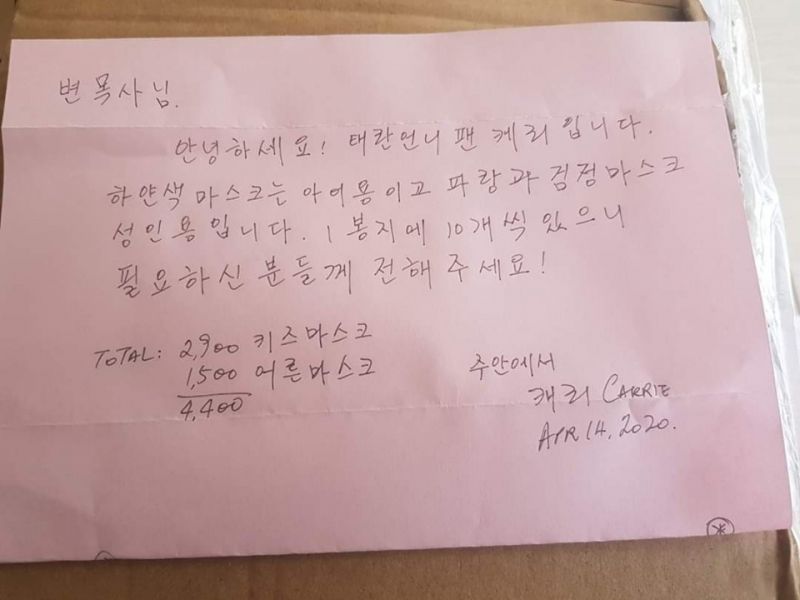 변 목사님.
안녕하세요! 태란언니 팬 케리 입니다.
하얀색 마스크는 아이용이고 파랑과 검정마스크
성인용입니다. 1 봉지에 10개씩 있으니
필요하신 분들께 전해 주세요!
TOTAL: 2,900 키즈마스크
1,500 어른마스크
4,400
주안에서
캐리 CARRIE
APR 14, 2020.